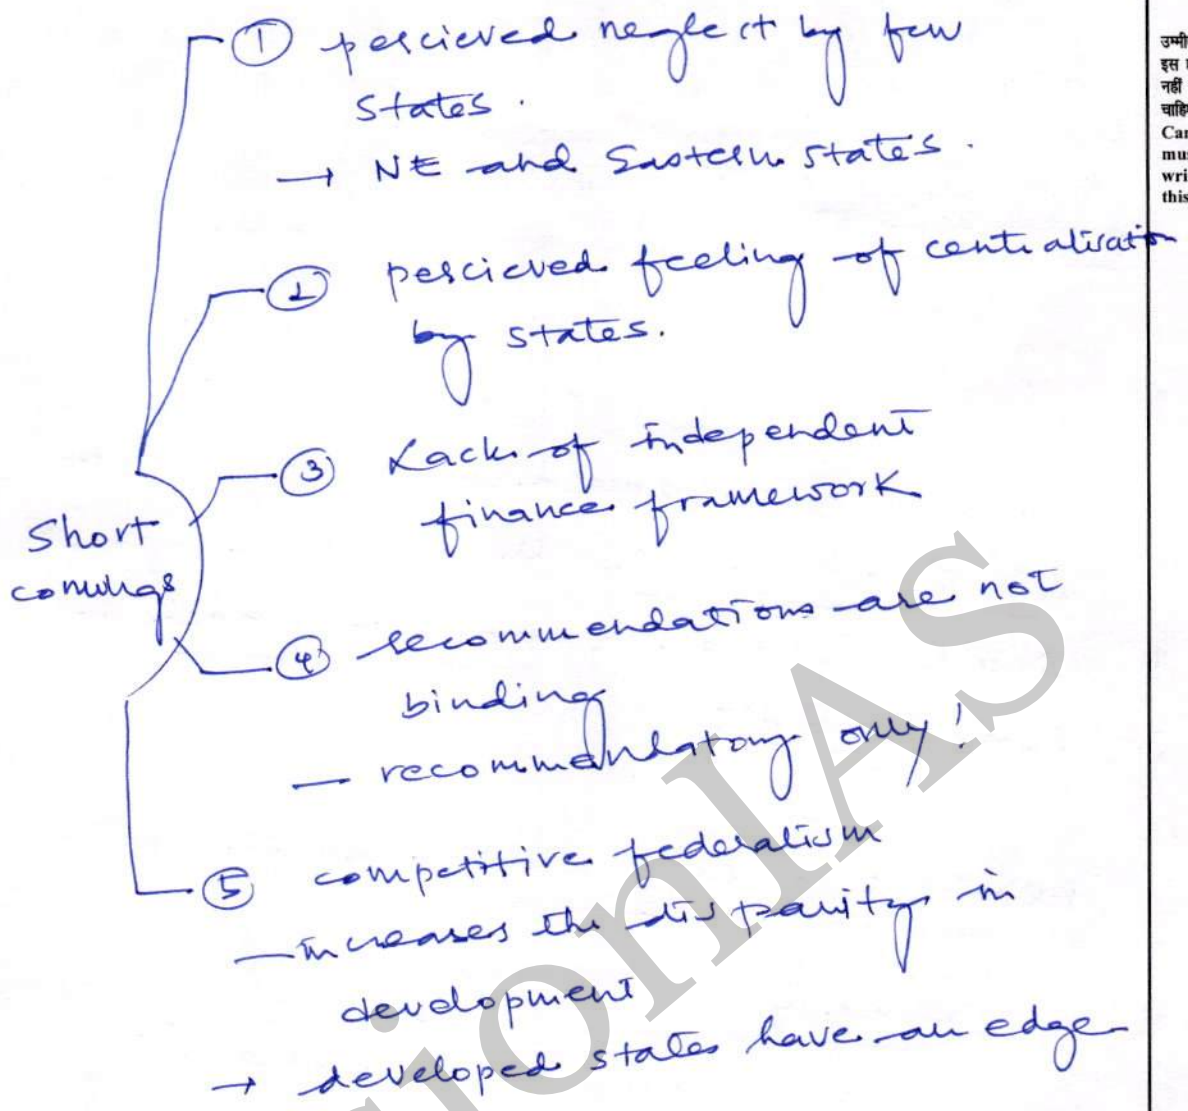 ① percieved neglect by few
states.
→ NE and Eastern states.
② percieved feeling of centralisation
by states.
③ Lack of independent
finance framework
Short
comings
④ recommendations are not
binding
— recommendatory only!
⑤ competitive federalism
— increases the disparity in
development
→ developed states have an edge
इस
नहीं
Can
mus
wri
this
ionIAS